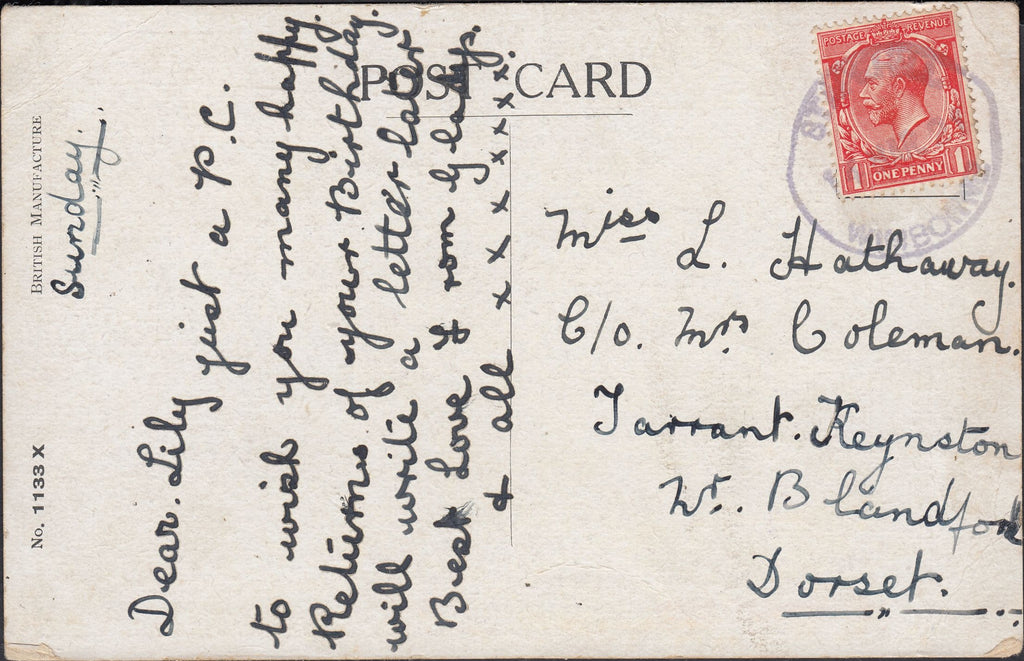 POST CARD
BRITISH MANUFACTURE
No. 1133 X
Sunday.
Dear. Lily just a P.C.
to wish you many happy.
Returns of your Birthday.
will write a letter later
Best Love from Gladys.
+ all x x x x x x x x.
POSTAGE REVENUE
1 ONE PENNY 1
Miss L. Hathaway.
C/o. Mrs Coleman.
Tarrant. Keynston
Nr. Blandford
Dorset.